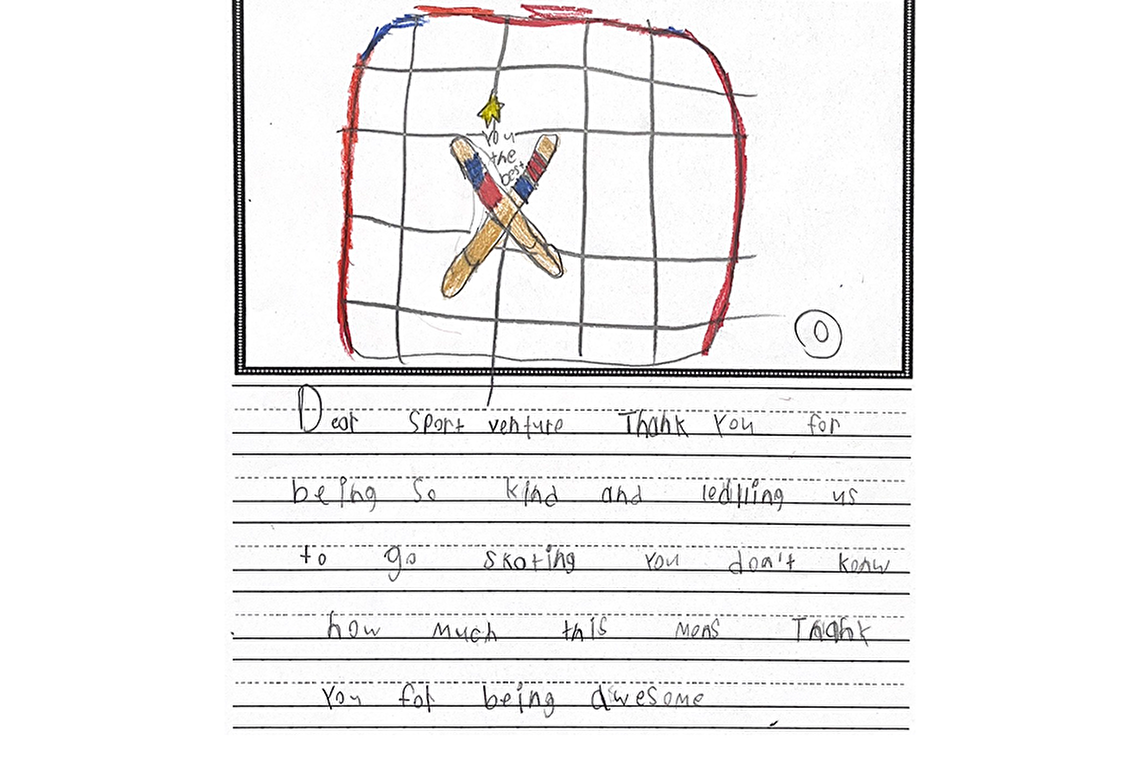 You
the
best
O
Dear Sport venture Thank you for
being so kind and ledlling us
to go skating you don't konw
how much this mens Thank
you for being awesome